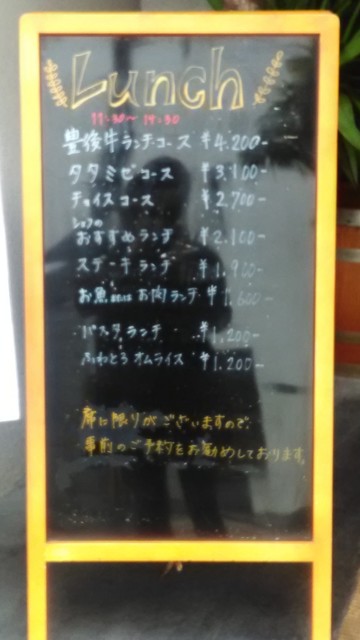 Lunch
11:30~14:30
豊後牛ランチコース ¥4.200-
タタミゼコース ¥3.100-
チョイスコース ¥2.700-
シェフの
おすすめランチ ¥2.100-
ステーキランチ ¥1.900-
お魚またはお肉ランチ ¥1.600-
パスタランチ ¥1.200-
ふわとろオムライス ¥1.200-
席に限りがございますので、
事前のご予約をお勧めしております。